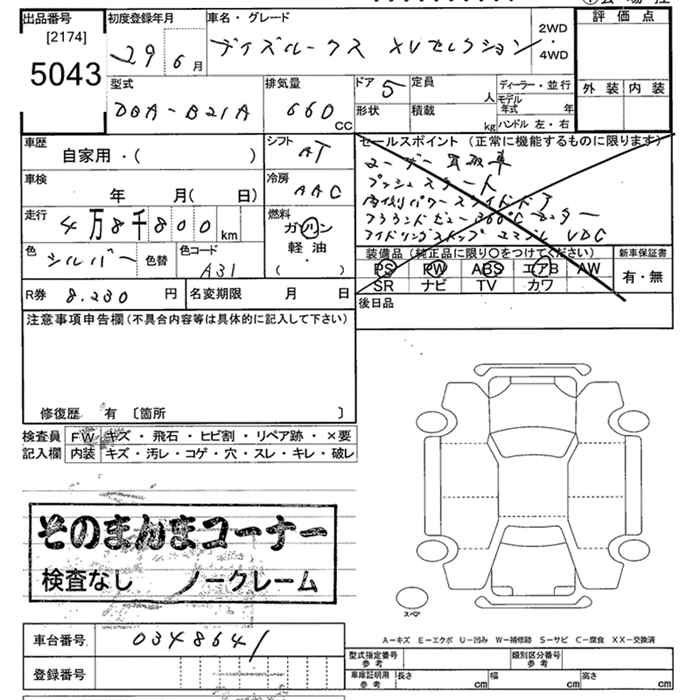 出品番号 初度登録年月 車名・グレード 評価点
[2174]
5043
29 6月 デイズルークス XVセレクション 2WD・4WD
型式 排気量 ドア 定員 ディーラー・並行 外装 内装
DBA-B21A 660 CC 5 人 モデル年式 年
形状 積載 kg ハンドル 左・右
車歴 シフト セールスポイント(正常に機能するものに限ります)
自家用・( ) AT
車検 冷房 プッシュスタート
年 月( 日) AAC
走行 燃料
4万8千800km ガソリン
軽油
色 シルバー 色替 色コード A31 ( ) 装備品(純正品に限り○をつけてください) 新車保証書
PS PW ABS エアB AW 有・無
SR ナビ TV カワ
R券 8.230 円 名変期限 月 日 後日品
注意事項申告欄(不具合内容等は具体的に記入して下さい)
修復歴 有 〔箇所 〕
検査員 FW キズ・飛石・ヒビ割・リペア跡・×要
記入欄 内装 キズ・汚レ・コゲ・穴・スレ・キレ・破レ
そのまんまコーナー
検査なし ノークレーム
スペア
A-キズ E-エクボ U-凹み W-補修跡 S-サビ C-腐食 XX-交換済
車台番号 0348641
型式指定番号 参考 類別区分番号 参考
登録番号 車庫証明用 参考 長さ cm 幅 cm 高さ cm